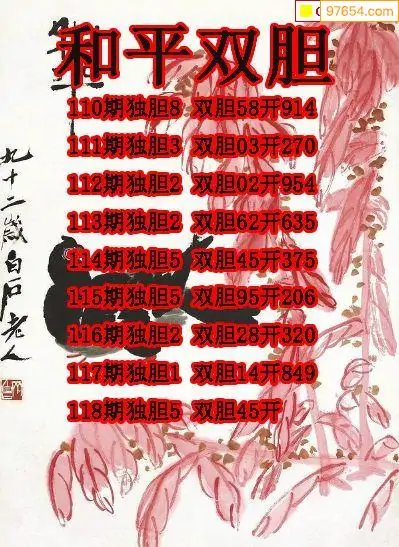 97654.com
和平双胆
110期独胆8 双胆58开914
111期独胆3 双胆03开270
112期独胆2 双胆02开954
113期独胆2 双胆62开635
114期独胆5 双胆45开375
115期独胆5 双胆95开206
116期独胆2 双胆28开320
117期独胆1 双胆14开849
118期独胆5 双胆45开
九十二歲白石老人